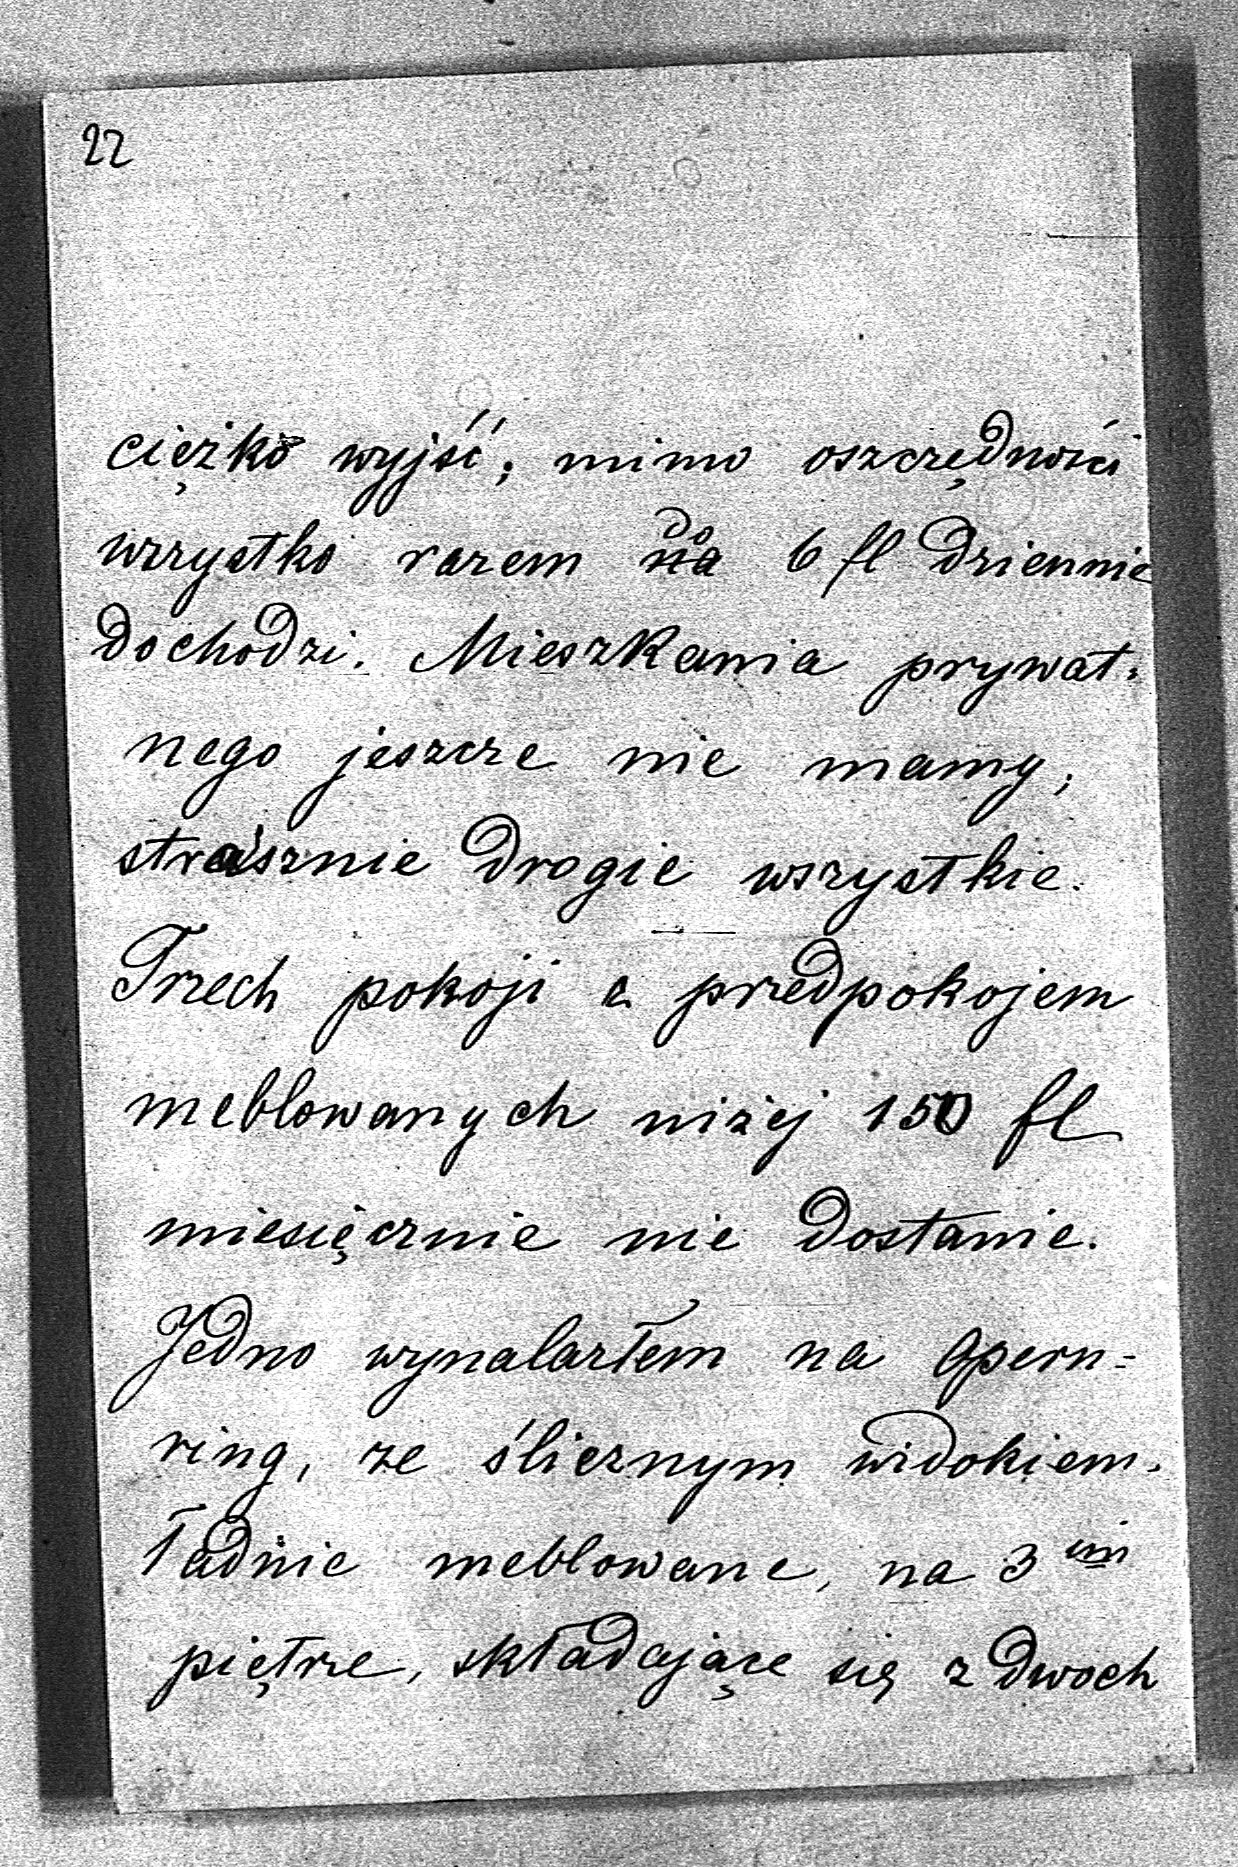 22
ciężko wyjść; mimo oszczędności
wszystko razem do na 6 fl dziennie
dochodzi. Mieszkania prywat-
nego jeszcze nie mamy,
strasznie drogie wszystkie.
Trzech pokoji z przedpokojem
meblowanych niżej 150 fl
miesięcznie nie dostanie.
Jedno wynalazłem na Opern=
ring, ze ślicznym widokiem.
ładnie meblowane, na 3im
piętrze, składające się z dwoch